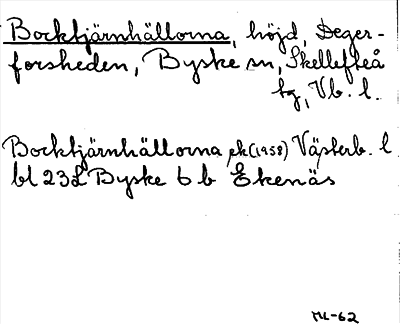 Bocktjärnhällorna, höjd, Deger-
forsheden, Byske sn, Skellefteå
tg, Vb. l.
Bocktjärnhällorna ek (1958) Västerb. l
bl 23L Byske 6 b Ekenäs
ML-62